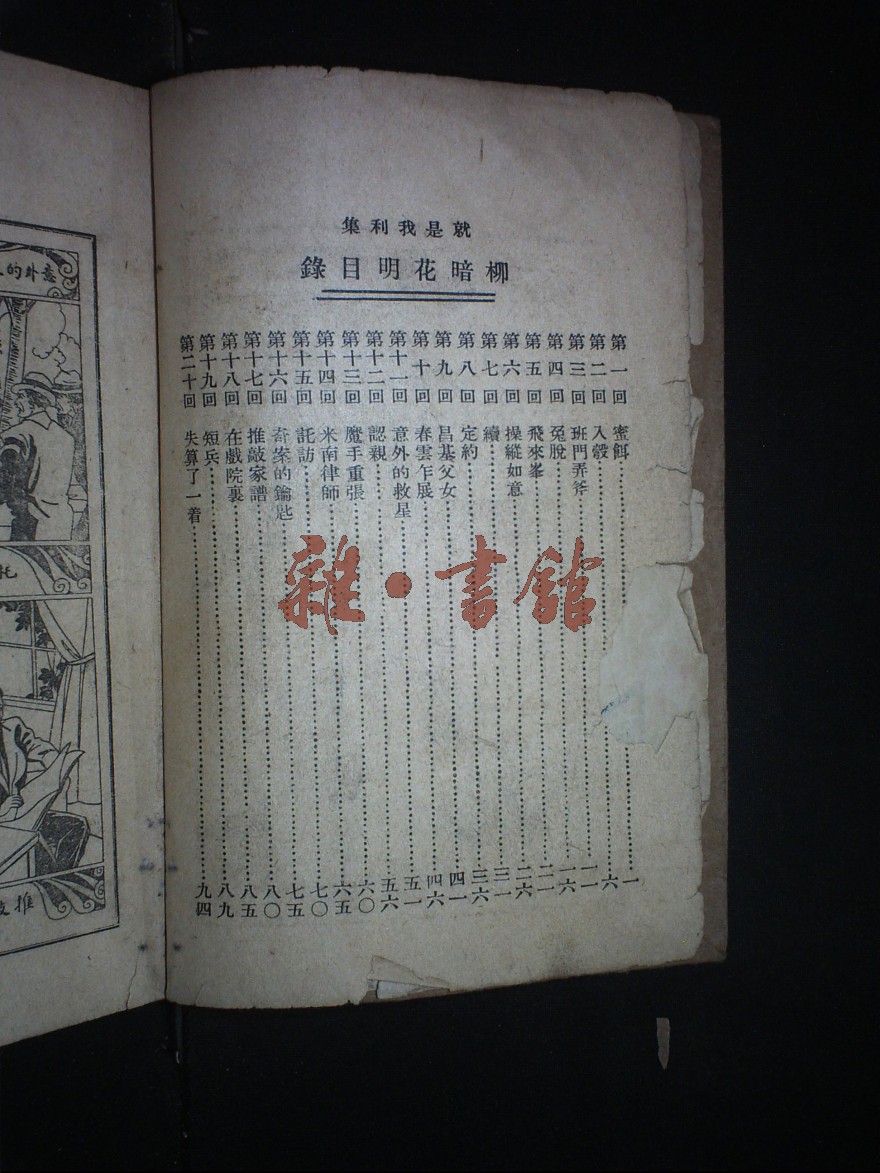 就是我利集
柳暗花明目錄
第一回 蜜餌……一
第二回 入彀……六
第三回 班門弄斧……一一
第四回 兔脫……一六
第五回 飛來峯……二一
第六回 操縱如意……二六
第七回 續……三一
第八回 定約……三六
第九回 昌基父女……四一
第十回 春雲乍展……四六
第十一回 意外的救星……五一
第十二回 認親……五六
第十三回 魔手重張……六〇
第十四回 米南律師……六五
第十五回 託訪……七〇
第十六回 奇案的鑰匙……七五
第十七回 推敲家譜……八〇
第十八回 在戲院裏……八五
第十九回 短兵……八九
第二十回 失算了一着……九四
意外的
託
推
雜·書館